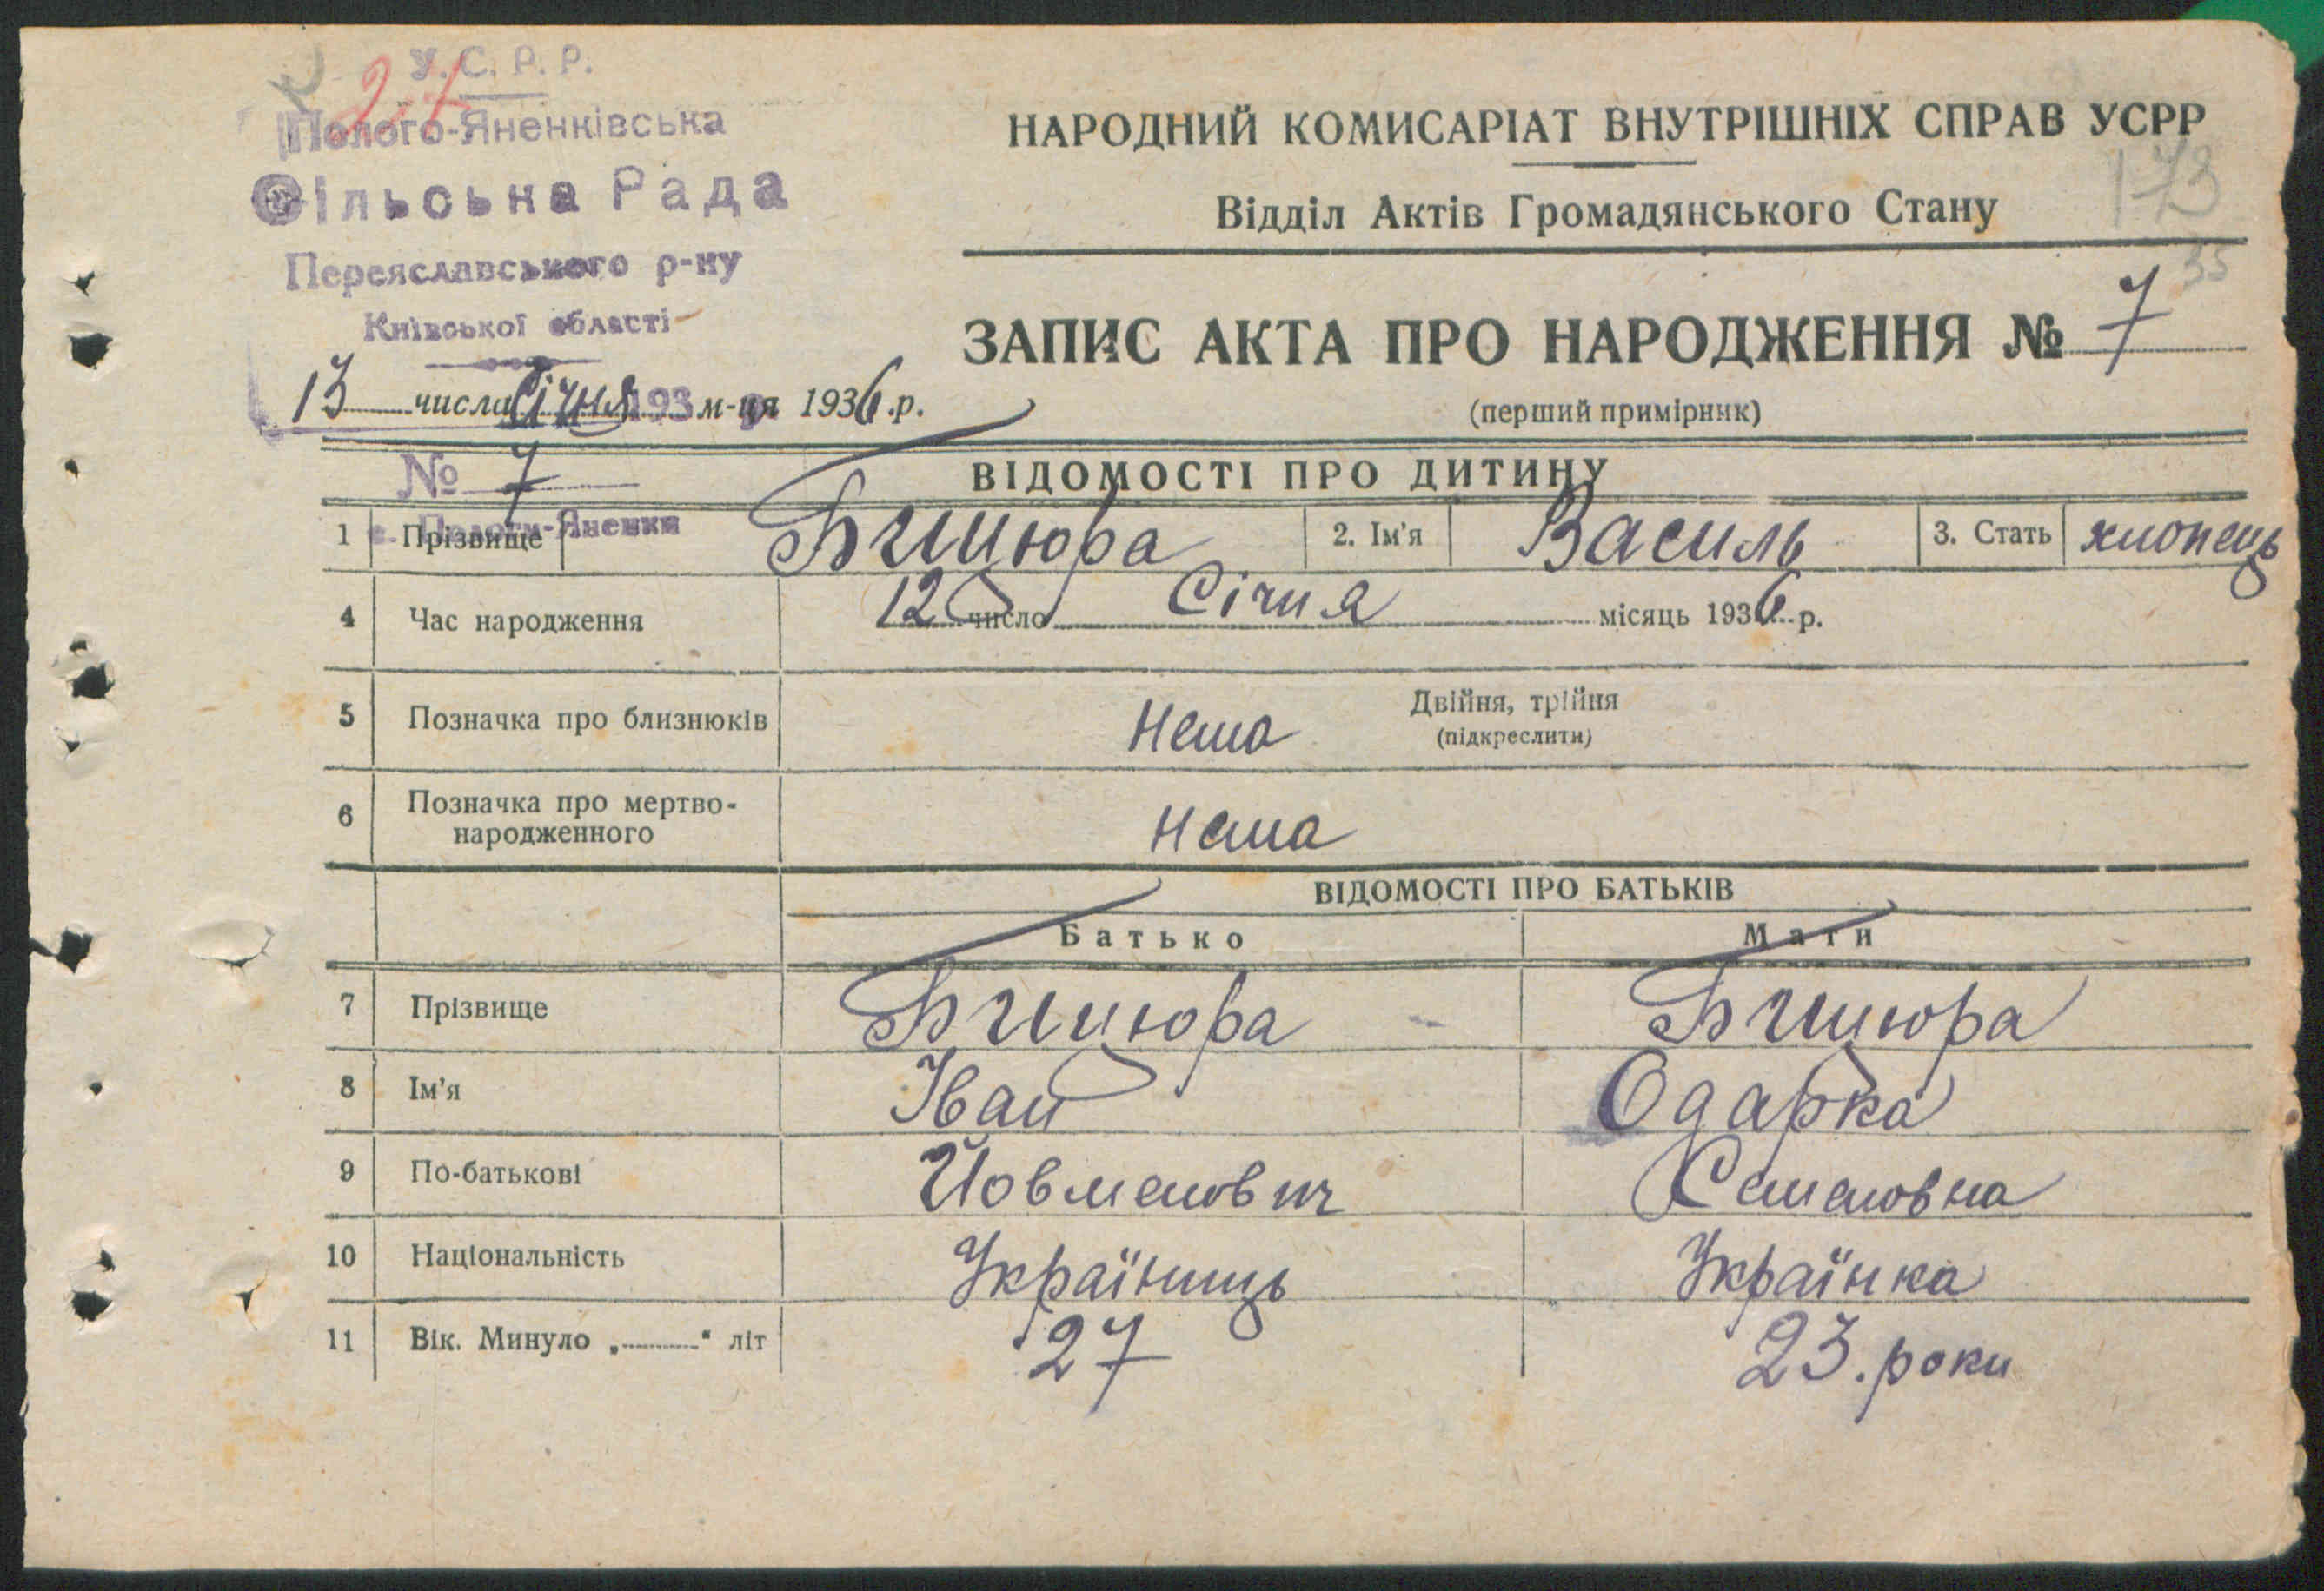 У.С.Р.Р.
27
Полого-Яненківська
Сільська Рада
Переяславського р-ну
Київської області
13 числа Січня 193 м-ця 1936 р.
№ 7
с. Пологи-Яненки
НАРОДНИЙ КОМИСАРІАТ ВНУТРІШНІХ СПРАВ УСРР
173
Відділ Актів Громадянського Стану
35
ЗАПИС АКТА ПРО НАРОДЖЕННЯ № 7
(перший примірник)
ВІДОМОСТІ ПРО ДИТИНУ
1 Прізвище Бицюра 2. Ім'я Василь 3. Стать хлопець
4 Час народження 12 число Січня місяць 1936 р.
5 Позначка про близнюків Нема Двійня, трійня
(підкреслити)
6 Позначка про мертво-
народженного нема
ВІДОМОСТІ ПРО БАТЬКІВ
Батько Мати
7 Прізвище Бицюра Бицюра
8 Ім'я Іван Одарка
9 По-батькові Семеновна
10 Національність Українець Українка
11 Вік. Минуло „ “ літ 27 23. роки